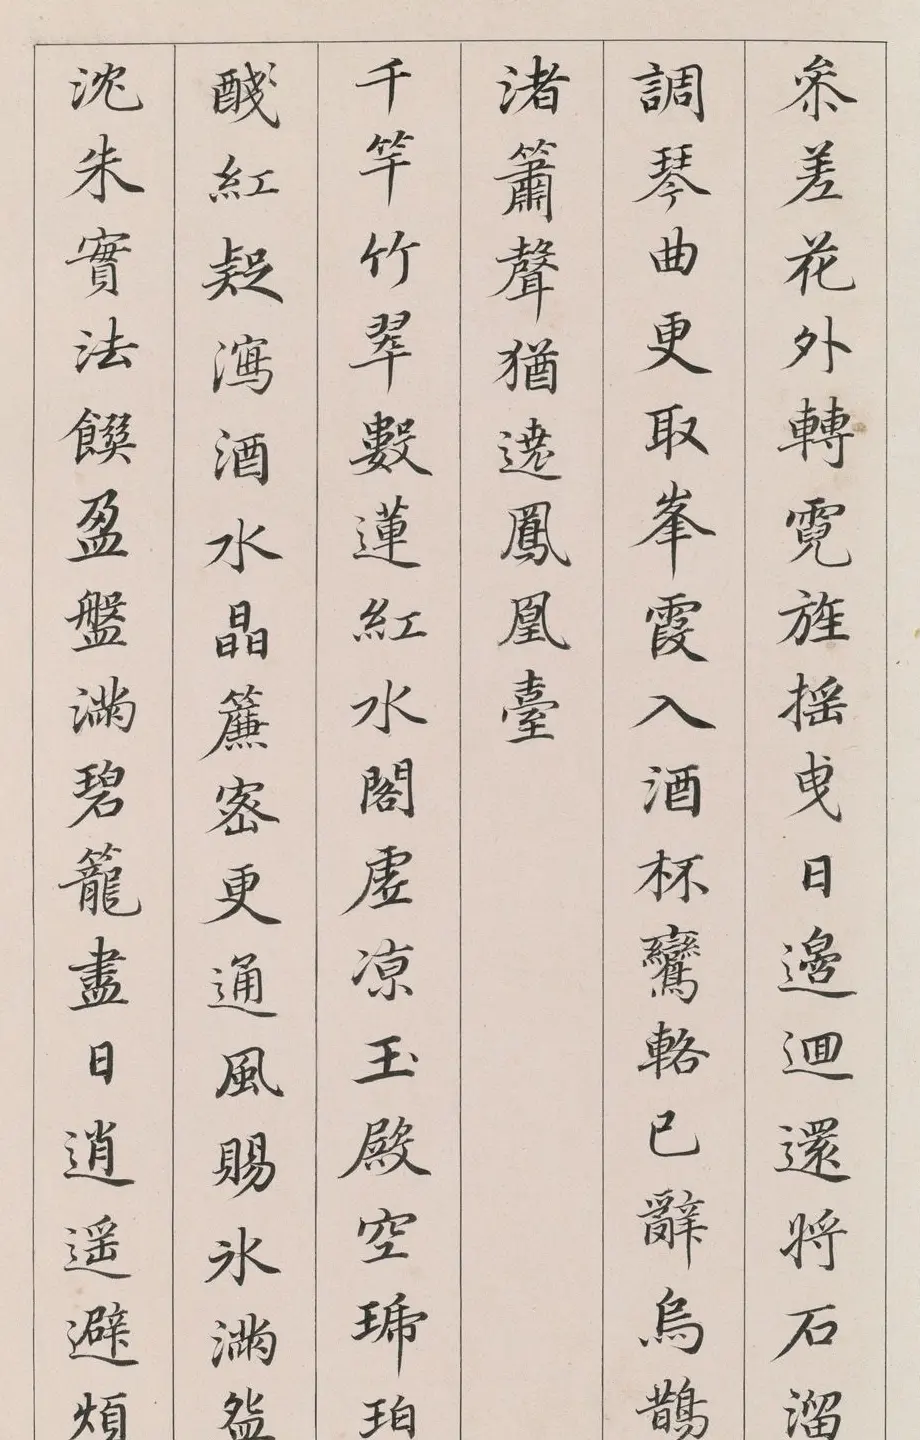 叅差花外轉霓旌摇曳日邊迴還將石溜
調琴曲更取峯霞入酒杯鸞輅已辭烏鵲
渚簫聲猶遶鳳凰臺
千竿竹翠數蓮紅水閣虛凉玉殿空琥珀
醆紅疑瀉酒水晶簾密更通風賜氷滿盌
沈朱實法饌盈盤滿碧籠盡日逍遥避煩